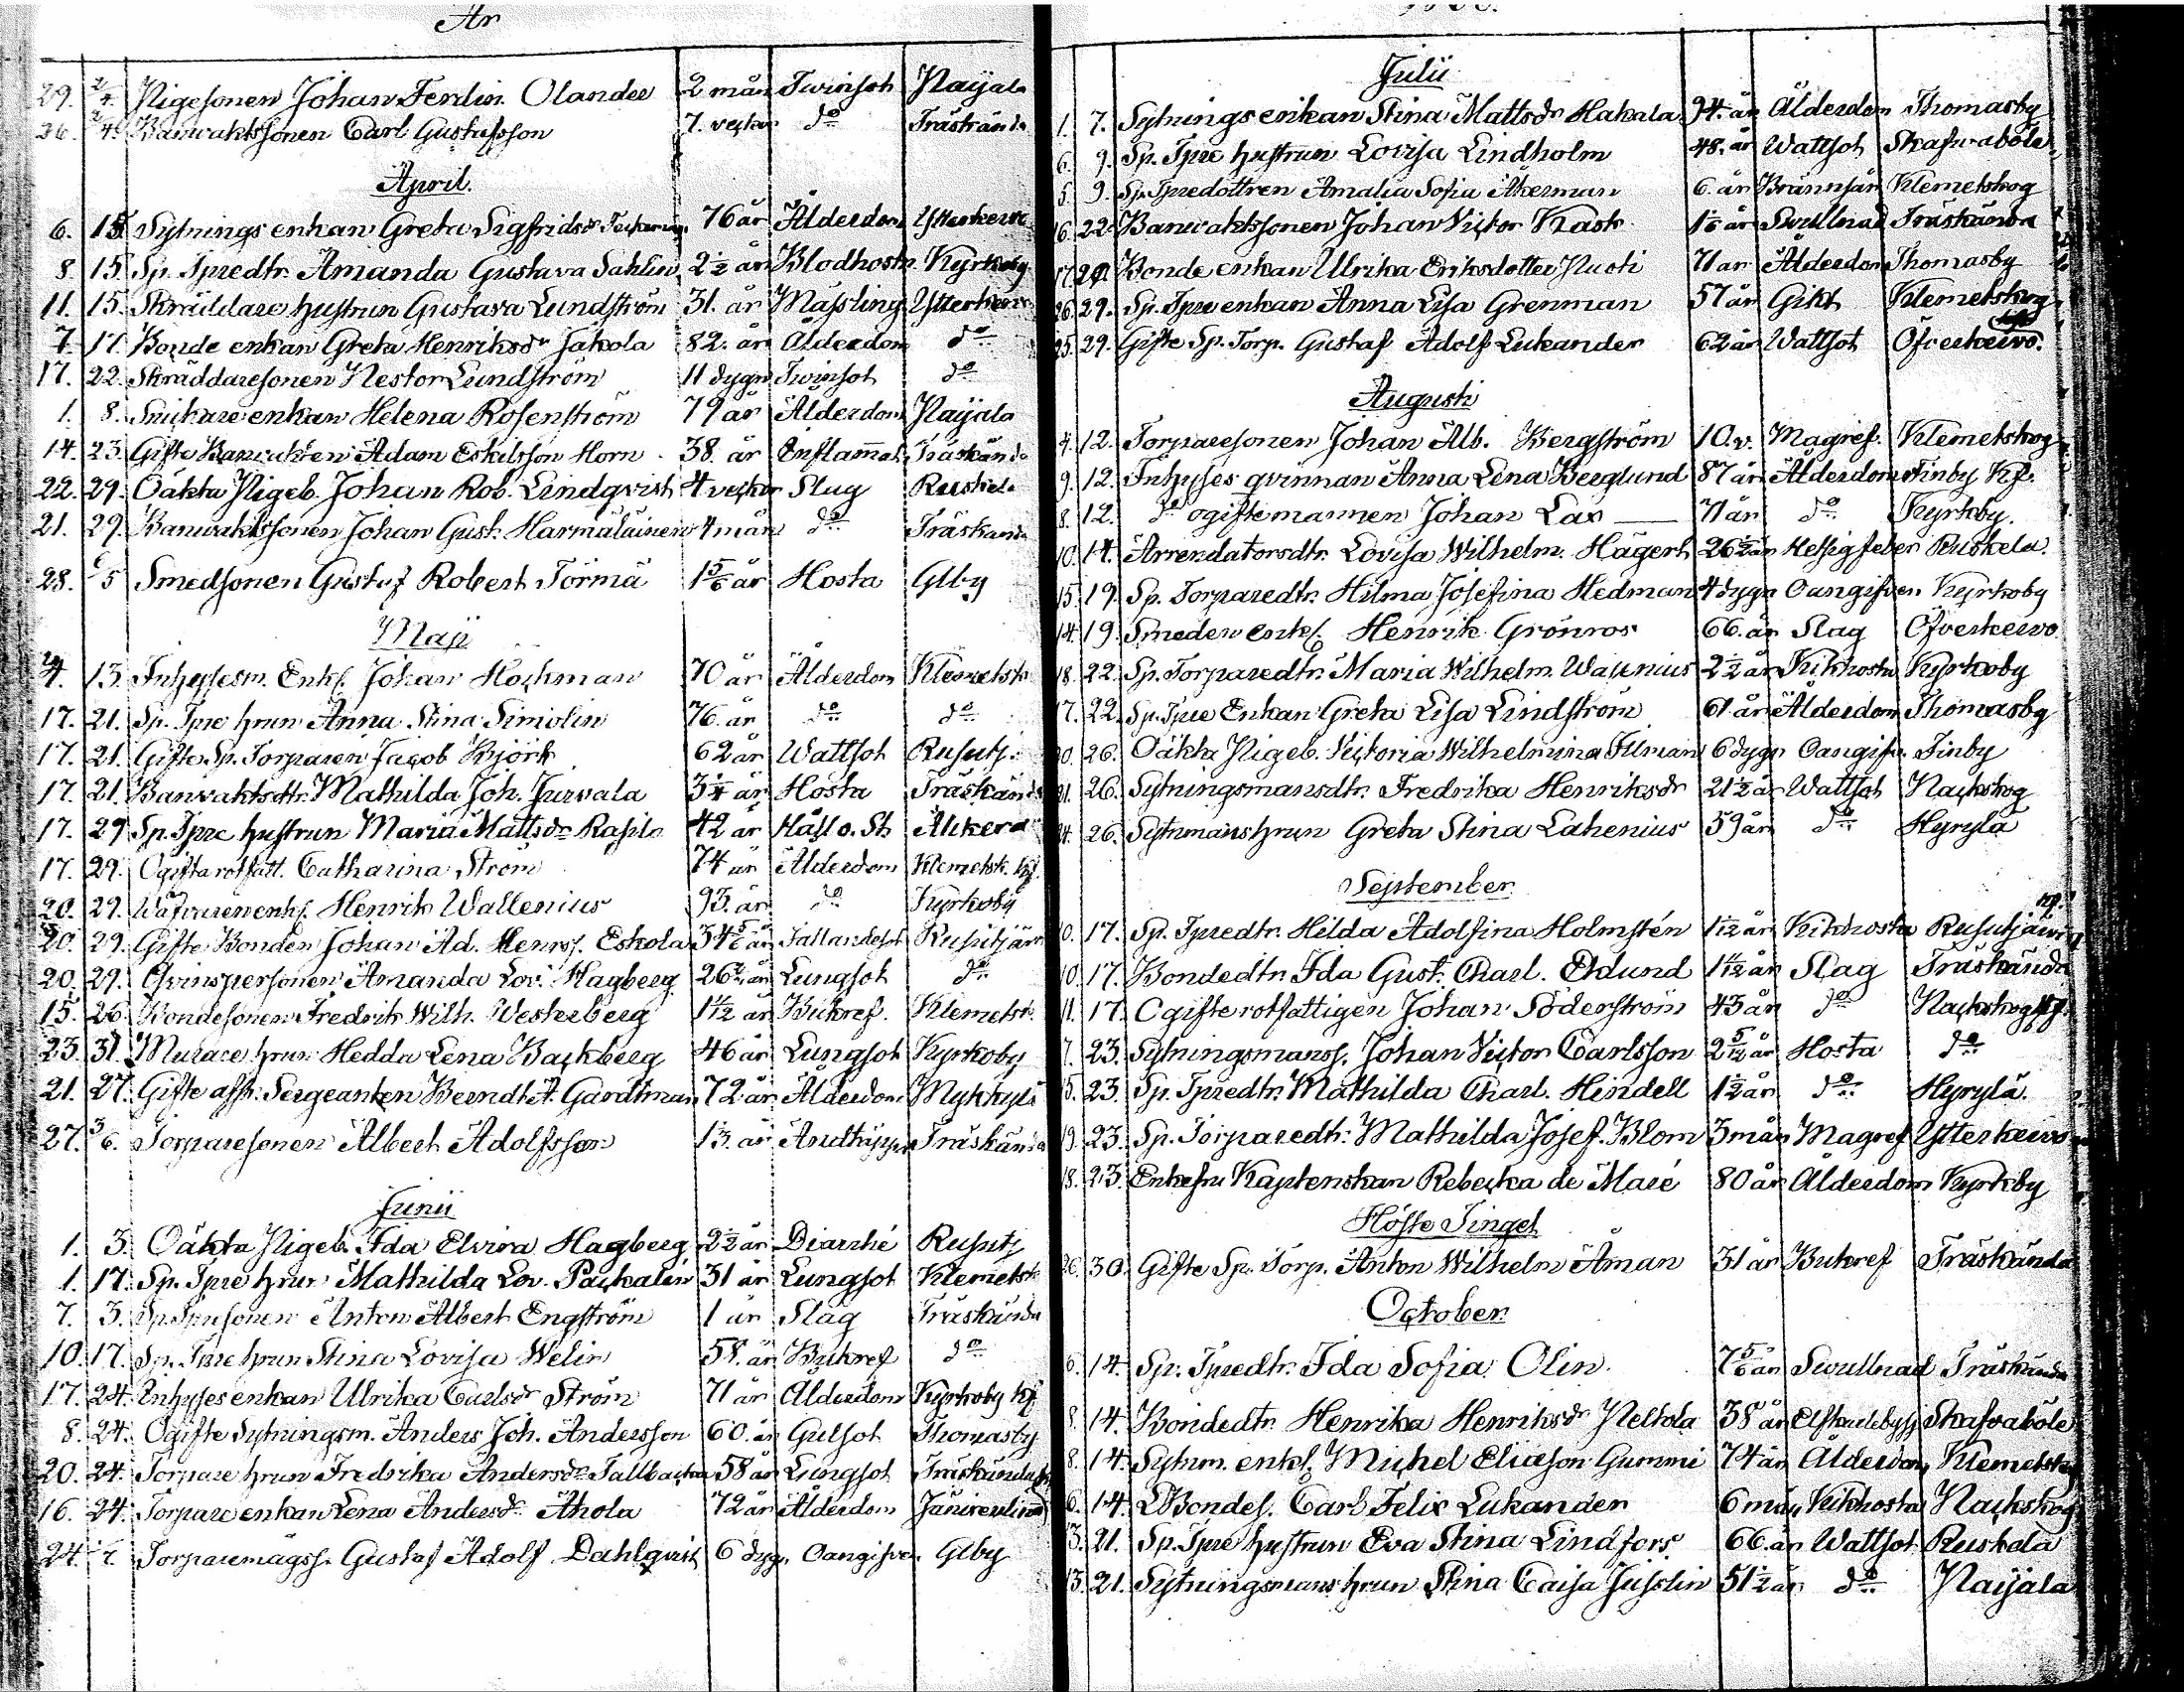 År
29. 2/4. Pigesonen Johan Ferdin. Olander 2 mån Twinsot Paijala
26. 2/4. Banvaktssonen Carl Gustafsson 7. veckor do Träskända
April.
6. 15. Sytnings enkan Greta Sigfridsdr 76 år Ålderdom Ytterkervo
8. 15. Sp. Tpredtr. Amanda Gustava Sahlin 2 1/2 år Blodhosta Kyrkoby
11. 15. Skräddare hustrun Gustava Lundström 31. år Mässling Ytterkervo
7. 17. Bonde enkan Greta Henriksdr Jakola 82. år Ålderdom do
17. 22. Skräddaresonen Nestor Lundström 11 dygn Twinsot do
1. 8. Snickare enkan Helena Rosenström 79 år Ålderdom Paijala
14. 23. Gifte Banvakten Adam Eskilsson Horn 38. år Inflammat. Träskända
22. 29. Oäkta Pigeb. Johan Rob. Lindqvist 4 veckor Slag Ruskela
21. 29. Banvaktssonen Johan Gust. Harmalainen 4 mån do Träskända
28. 5 Smedsonen Gustaf Robert Törmä 1 5/6 år Hosta Glby
Maji
4. 13. Inhysesm. Enkl. Johan Hochman 70 år Ålderdom Klemetsk
17. 21. Sp. Tpre hrun Anna Stina Simolin 76. år do do
17. 21. Gifte Sp. Torparen Jacob Björk 62 år Wattsot Rusutj.
17. 21. Banvaktsdtr. Mathilda Joh. Jurvala 3 1/4 år Hosta Träskända
17. 29 Sp. Tpre hustrun Maria Mattsdr Rasila 42 år Håll o. St. Åkerd
17. 29. Ogifta rotfatt. Catharina Ström 74 år Ålderdom Klemetsk. Kf.
20. 29. Wäfvaren enkl. Henrik Wallenius 93. år do Kyrkoby
20. 29. Gifte Bonden Johan Ad. Henrss. Eskola 34 5/6 år Fallandesot Rusutjärv
20. 29. Qvinspersonen Amanda Lov. Hagberg 26 år Lungsot do
15. 26 Bondesonen Fredrik Wilh. Westerberg 1 1/12 år Bukref. Klemetsk.
23. 31. Murare hrun Hedda Lena Backberg 46 år Lungsot Kyrkoby
21. 27. Gifte afsk. Sergeanten Berndt A. Gardtman 72. år Ålderdom Myckyls
27. 3/6. Torparesonen Albert Adolfsson 1 1/3. år Andtäppa Träskända
Junii
1. 3. Oäkta Pigeb. Ida Elvira Hagberg 2 1/2 år Diarrhé Rusutj
1. 17. Sp. Tpre hrun Mathilda Lov. Packalén 31 år Lungsot Klemetsk
7. 3. Sp. Tpresonen Anton Albert Engström 1 år Slag Träskända
10. 17. Sp. Tpre hrun Stina Lovisa Welin 58. år Bukref do
17. 24. Inhyses enkan Ulrika Carlsdr Ström 71 år Ålderdom Kyrkoby Kf
8. 24. Ogifte Sytningsm. Anders Joh. Andersson 60. år Gulsot Thomasby
20. 24. Torpare hrun Fredrika Andersdr Tallbacka 58 år Lungsot Träskända
16. 24. Torpare enkan Lena Andersdr Ahola 72 år Ålderdom
24. Torparemågss. Gustaf Adolf Dahlqvist 6 dyg. Oangifven Glby
Julii
1. 7. Sytnings enkan Stina Mattsdr Hakala 94. år Ålderdom Thomasby
6. 9. Sp. Tpre hustrun Lovisa Lindholm 48. år Wattsot Skafvaböle
5. 9. Sp. Tpredottren Amalia Sofia Åkerman 6. år Brännsår Klemetskog
16. 22. Banvaktssonen Johan Victor Rask 1 1/6 år Svullnad Träskända
17. 29. Bonde enkan Ulrika Eriksdotter Nuoti 71 år Ålderdom Thomasby
26. 29. Sp. Tpre enkan Anna Lisa Grenman 57 år Gikt Klemetskog
25. 29. Gifte Sp. Torp. Gustaf Adolf Lukander 62 år Wattsot Öfverkervo.
Augusti
4. 12. Torparesonen Johan Alb. Bergström 10. v. Magref. Klemetskog
9. 12. Inhyses qvinnan Anna Lena Berglund 87 år Ålderdom Finby Kf.
8. 12. do ogifte mannen Johan Lax 71 år do Kyrkby.
10. 14. Arrendatorsdtr. Lovisa Wilhelm. Hägert 26 1/2 år Hetsig feber Ruskela.
15. 19. Sp. Torparedtr. Hilma Josefina Hedman 4 dygn Oangifven Kyrkoby
14. 19. Smeden enkl. Henrik Grönros 66. år Slag Öfverkervo.
18. 22. Sp. Torparedtr. Maria Wilhelm. Wallenius 2 1/2 år Kikhosta Kyrkoby
17. 22. Sp. Tpre Enkan Greta Lisa Lindström 61 år Ålderdom Thomasby
20. 26. Oäkta Pigeb. Victoria Wilhelmina Filman 6 dygn Oangifv. Finby
21. 26. Sytningsmansdtr. Fredrika Henriksdr 21 1/2 år Wattsot Nackskog
24. 26. Sytnmanshrun Greta Stina Lahenius 59 år do Hyrylä
September
10. 17. Sp. Tpredtr. Hilda Adolfina Holmstén 1 1/12 år Kikhosta Rusutjärvi
10. 17. Bondedtr. Ida Gust. Charl. Eklund 1 4/12 år Slag Träskända
11. 17. Ogifte rotfattigen Johan Söderström 43 år do Nackskog Kf.
7. 23. Sytningsmanss. Johan Victor Carlsson 2 5/12 år Hosta do
15. 23. Sp. Tpredtr. Mathilda Charl. Hindell 1 1/2 år do Hyrylä.
19. 23. Sp. Torparedtr. Mathilda Josef. Blom 3 mån Magref Ytterkervo
18. 23. Enkefru Kaptenskan Rebecka de Maré 80 år Ålderdom Kyrkby
Höste Tinget
26. 30. Gifte Sp. Torp. Anton Wilhelm Åman 31 år Bukref Träskända
October
6. 14. Sp. Tpredtr. Ida Sofia Olin 7 5/6 år Svullnad Träskända
8. 14. Bondedtr. Henrika Henriksdr Peltola 38 år Skafvaböle
8. 14. Sytnm. enkl. Michel Eliason Gummi 74 år Ålderdom Klemetskog
6. 14. Bondes. Carl Felix Lukander 6 mån Kikhosta Nackskog
13. 21. Sp. Tpre hustrun Eva Stina Lindfors 66. år Wattsot Ruskela
13. 21. Sytningsmans hrun Stina Caisa Juslin 51 1/2 år do Paijala